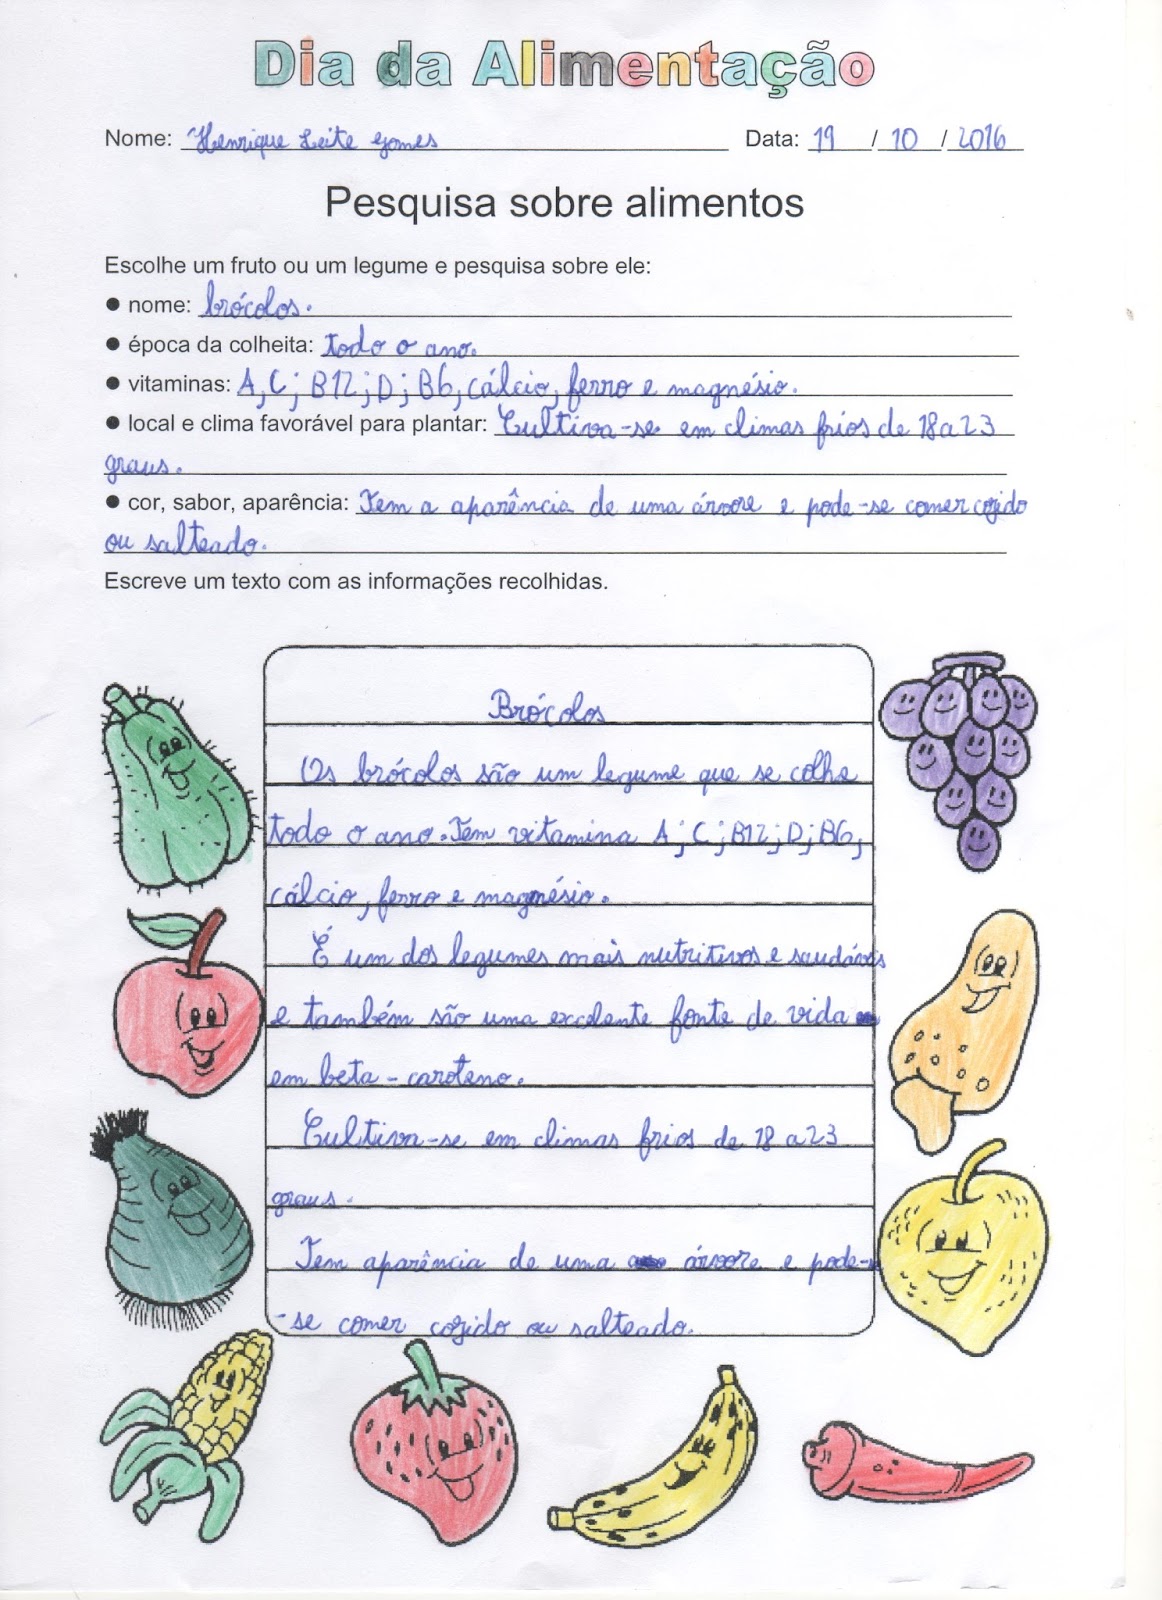 Dia da Alimentação
Nome: Henrique Leite Gomes Data: 19 / 10 / 2016
Pesquisa sobre alimentos
Escolhe um fruto ou um legume e pesquisa sobre ele:
● nome: brócolos.
● época da colheita: todo o ano.
● vitaminas: A, C; B12; D; B6, cálcio, ferro e magnésio.
● local e clima favorável para plantar: Cultiva-se em climas frios de 18 a 23
graus.
● cor, sabor, aparência: Tem a aparência de uma árvore e pode-se comer cozido
ou salteado.
Escreve um texto com as informações recolhidas.
Brócolos
Os brócolos são um legume que se colhe
todo o ano. Tem vitamina A; C; B12; D; B6,
cálcio, ferro e magnésio.
É um dos legumes mais nutritivos e saudáveis
e também são uma excelente fonte de vida
em beta-caroteno.
Cultiva-se em climas frios de 18 a 23
graus.
Tem aparência de uma árvore e pode-
-se comer cozido ou salteado.